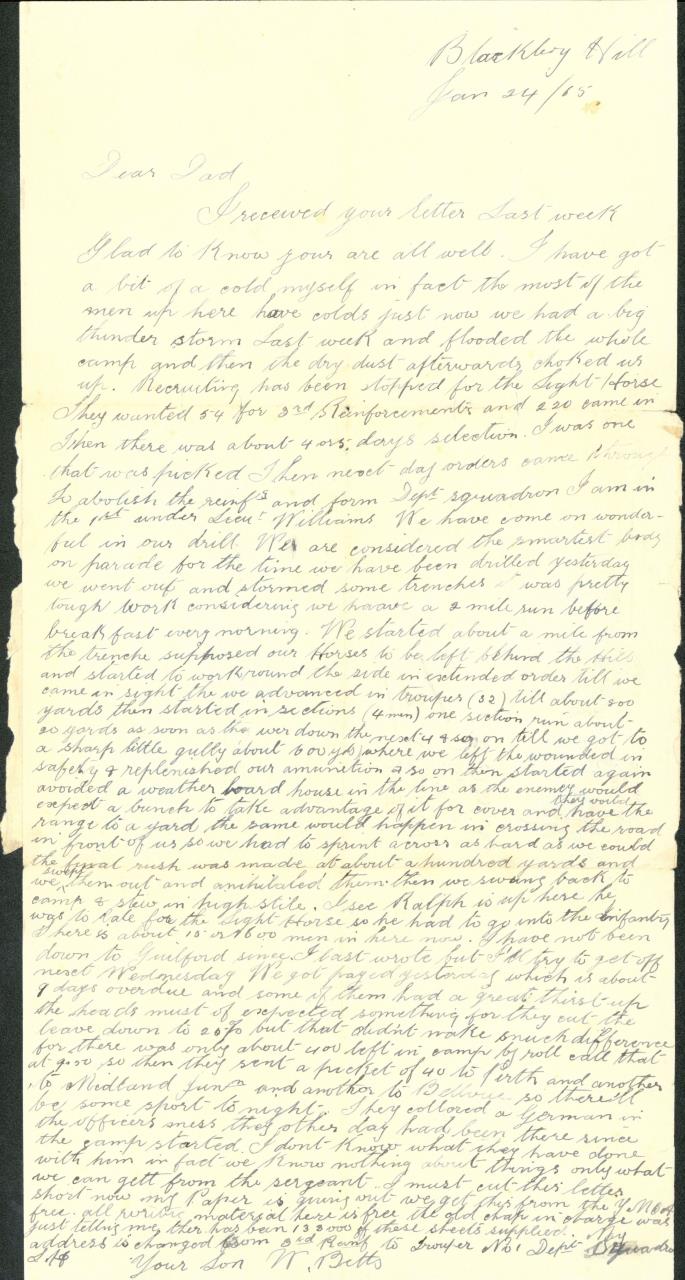 Blackboy Hill
Jan 24/15
Dear Dad
I received your letter Last week
Glad to know your are all well. I have got
a bit of a cold myself in fact the most of the
men up here have colds just now we had a big
thunder storm Last week and flooded the whole
camp and then the dry dust afterwards choked us
up. Recruiting has been stopped for the Light Horse
They wanted 54 for 3rd Reinforcements and 220 came in
Then there was about 4 or 5 days selection. I was one
that was picked Then next day orders came through
to abolish the reinfts and form Dept squadron I am in
the 1st under Lieut Williams We have come on wonder-
ful in our drill We are considered the smartest body
on parade for the time we have been drilled yesterday
we went out and stormed some trenches it was pretty
tough work considering we haave a 2 mile run before
breakfast every morning. We started about a mile from
the trenche supposed our Horses to be left behind the Hill
and started to work round the side in extended order till we
came in sight the we advanced in troupes (32) till about 800
yards then started in sections (4 men) one section run about
20 yards as soon as the wer down the next 4 & so on till we got to
a sharp little gully about 600 yds where we left the wounded in
safety & replenished our amunition & so on then started again
avoided a weather board house in the line as the enemy would
expect a bunch to take advantage of it for cover and they would have the
range to a yard the same would happen in crossing the road
in front of us so we had to sprint across as hard as we could
the final rush was made at about a hundred yards and
we swept them out and anihilated them then we swung back to
camp & stew in high stile. I see Ralph is up here he
was to late for the Light Horse so he had to go into the infantry
There is about 15 or 1600 men in here now. I have not been
down to Guilford since I last wrote but I'll try to get off
next Wednesday We got payed yesterday which is about
9 days overdue and some if them had a great thirst up
the heads must of expected something for they cut the
leave down to 20% but that didint make much difference
for there was only about 400 left in camp by roll call that
at 9.30 so then they sent a picket of 40 to Perth and another
to Midland Junn and another to Bellevue so there'll
be some sport to night. They collored a German in
the officers mess they other day had been there since
the camp started I dont know what they have done
with him in fact we know nothing about things only what
we can gett from the sergeant. I must cut this letter
short now my Paper is giving out we get this from the Y.M.C.A
free. all writing material here is free the old chap in charge was
just telling me ther has been 133000 of these sheets supplied. My
address is changed from 3rd Reinf to Trouper No 1 Dept Squadron
L.H.
Your Son W. Betts